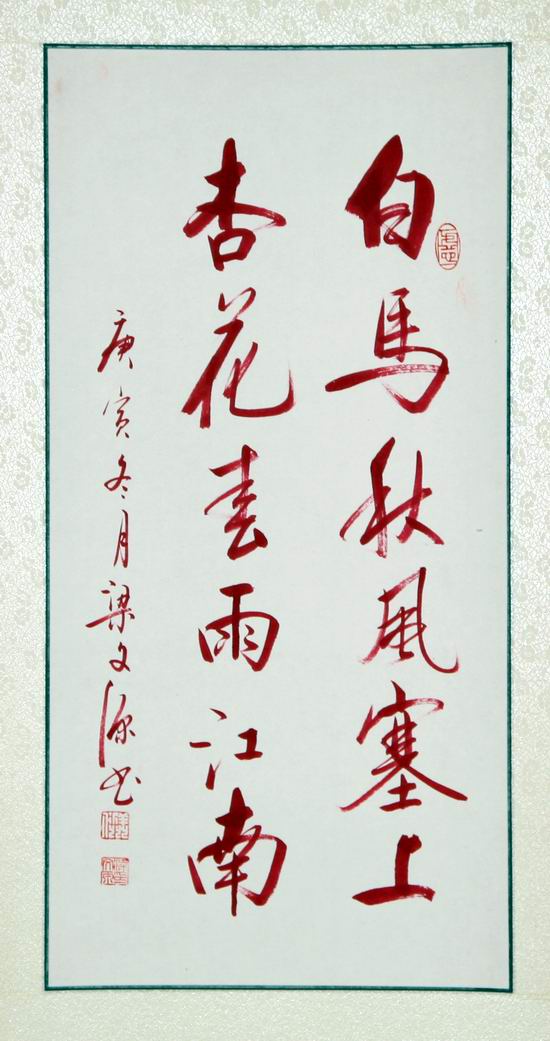 白馬秋風塞上
杏花春雨江南
庚寅冬月梁文源书